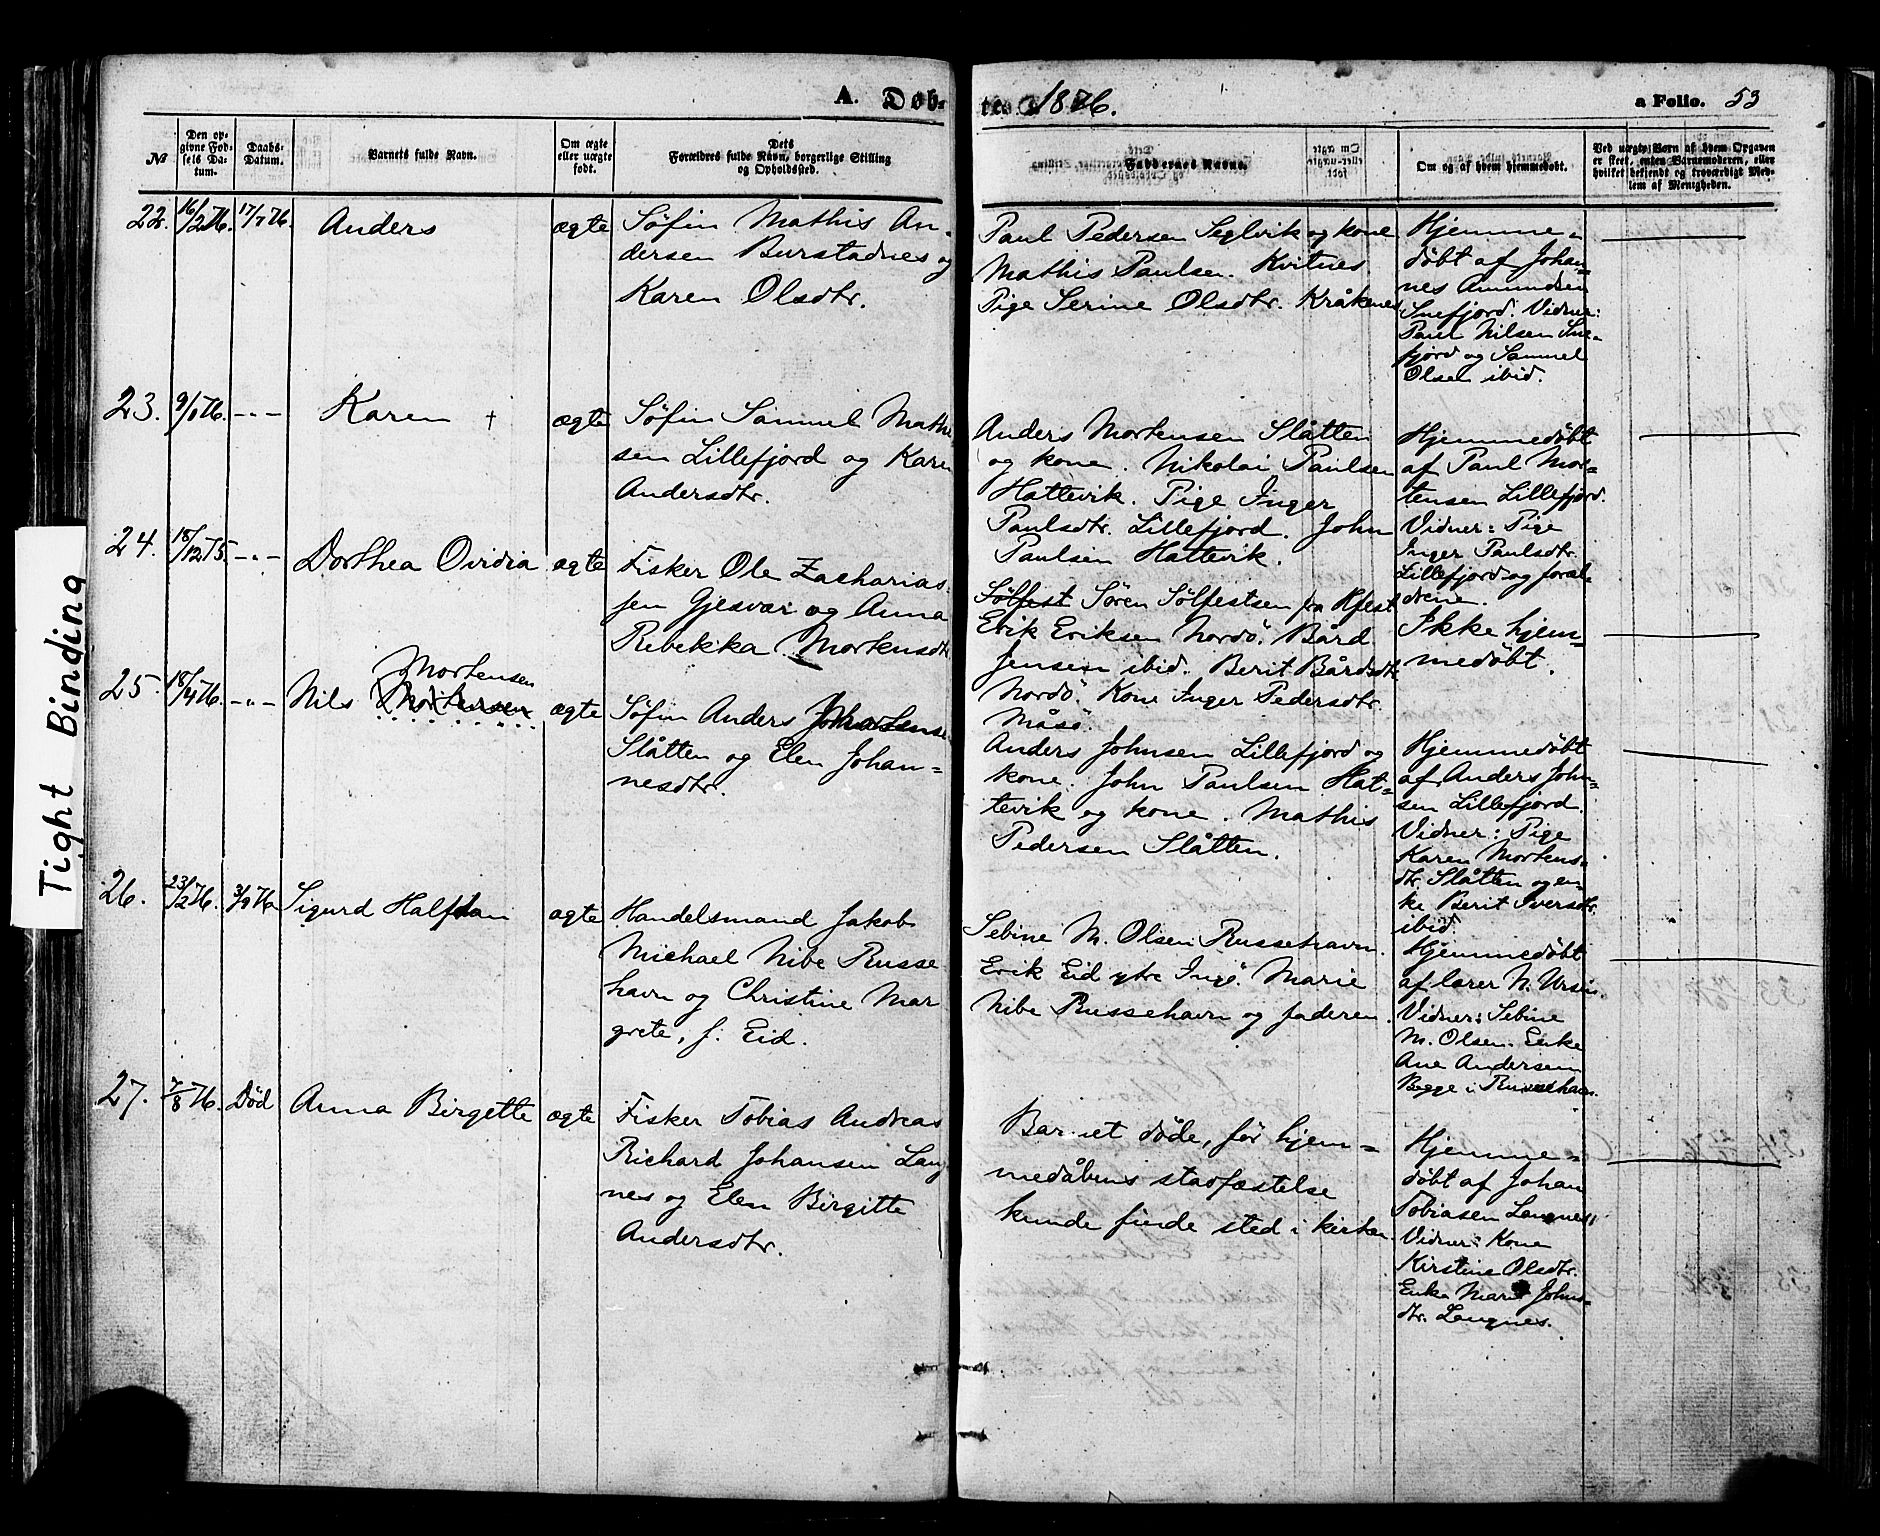 A. Døb-
te. 1876.
a Folio. 53
No
Den op-
givne Fød-
sels Da-
tum.
Daabs-
Datum.
Barnets fulde Navn.
Om ægte
eller uægte
født.
Dets
Forældres fulde Navn, borgerlige Stilling
og Opholdssted.
Faddernes Navne.
Om og af hvem hjemmedøbt.
Ved uægte Børn af hvem Opgaven
er skeet, enten Barnemoderen, eller
hvilket bekjendt og troværdigt Med-
lem af Menigheden.
22. 16/2 76. 17/7 76. Anders ægte
Søfin Mathis An-
dersen Burstadnes og
Karen Olsdtr.
Paul Pedersen Seglvik og kone
Mathis Paulsen. Kvitnes
Pige Serine Olsdtr. Kråkenes
Hjemme-
døbt af Johan-
nes Amundsen
Snefjord. Vidner:
Paul Nilsen Sne-
fjord og Sammel
Olsen ibid.
23. 9/1 76. -"- Karen + ægte
Søfin Samuel Mathi
sen Lillefjord og Karen
Andersdtr.
Anders Mortensen Slåtten
og kone. Nikolai Paulsen
Hattevik. Pige Inger
Paulsdtr. Lillefjord. John
Paulsen Hattevik.
Hjemmedøbt
af Paul Mor-
tensen Lillefjord.
Vidner: Pige
Inger Paulsdtr.
Lillefjord og foræl-
drene.
24. 18/12 75. -"- Dorthea Ovidia ægte
Fisker Ole Zacharias-
sen Gjesvær og Anna
Rebekka Mortensdtr
Sølfest Søren Sølfestsen fra Kfest
Erik Eriksen Nordö. Bård
Jensen ibid. Berit Bårdsdtr
Nordö. Kone Inger Pedersdtr.
Måsö.
Ikke hjem-
medøbt.
25. 18/4 76. -"- Nils Mortensen
Mortensen
ægte
Søfin Anders Johansen
Slåtten og Elen Johan-
nesdtr.
Anders Johnsen Lillefjord og
kone. John Paulsen Hat-
tevik og kone. Mathis
Pedersen Slåtten.
Hjemmedøbt
af Anders John-
sen Lillefjord.
Vidner: Pige
Karen Mortens-
dtr. Slåtten og en-
ke Berit Iversdtr.
ibid.
26. 23/2 76. 3/9 76 Sigurd Halfdan ægte
Handelsmand Jakob
Michael Nibe Russe-
havn og Christine Mar
grete, f. Eid.
Sebine M. Olsen Russehavn.
Erik Eid ytre Ingö. Marie
Nibe Russehavn og faderen.
Hjemmedøbt
af lærer N. Ursin.
Vidner: Sebine
M. Olsen. Enke
Ane Andersen
Begge i Russehavn.
27. 7/8 76. Død Anna Birgitte ægte
Fisker Tobias Andreas
Richard Johansen Lang
nes og Elen Birgitte
Andersdtr.
Barnet døde, før hjem-
medåbens stadfæstelse
kunde finde sted i kirken.
Hjemme-
døbt af Johan
Tobiasen Langnes
Vidner: Kone
Kirstine Olsdtr.
Enke Marie Johns-
dtr. Langnes.
Tight Binding